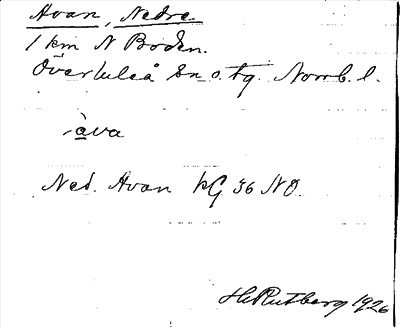 Avan, Nedre.
1 km N Boden.
Överluleå sn o. tg. Norrb. l.
àva
Ned. Avan kG 36 NO.
H Rutberg 1926